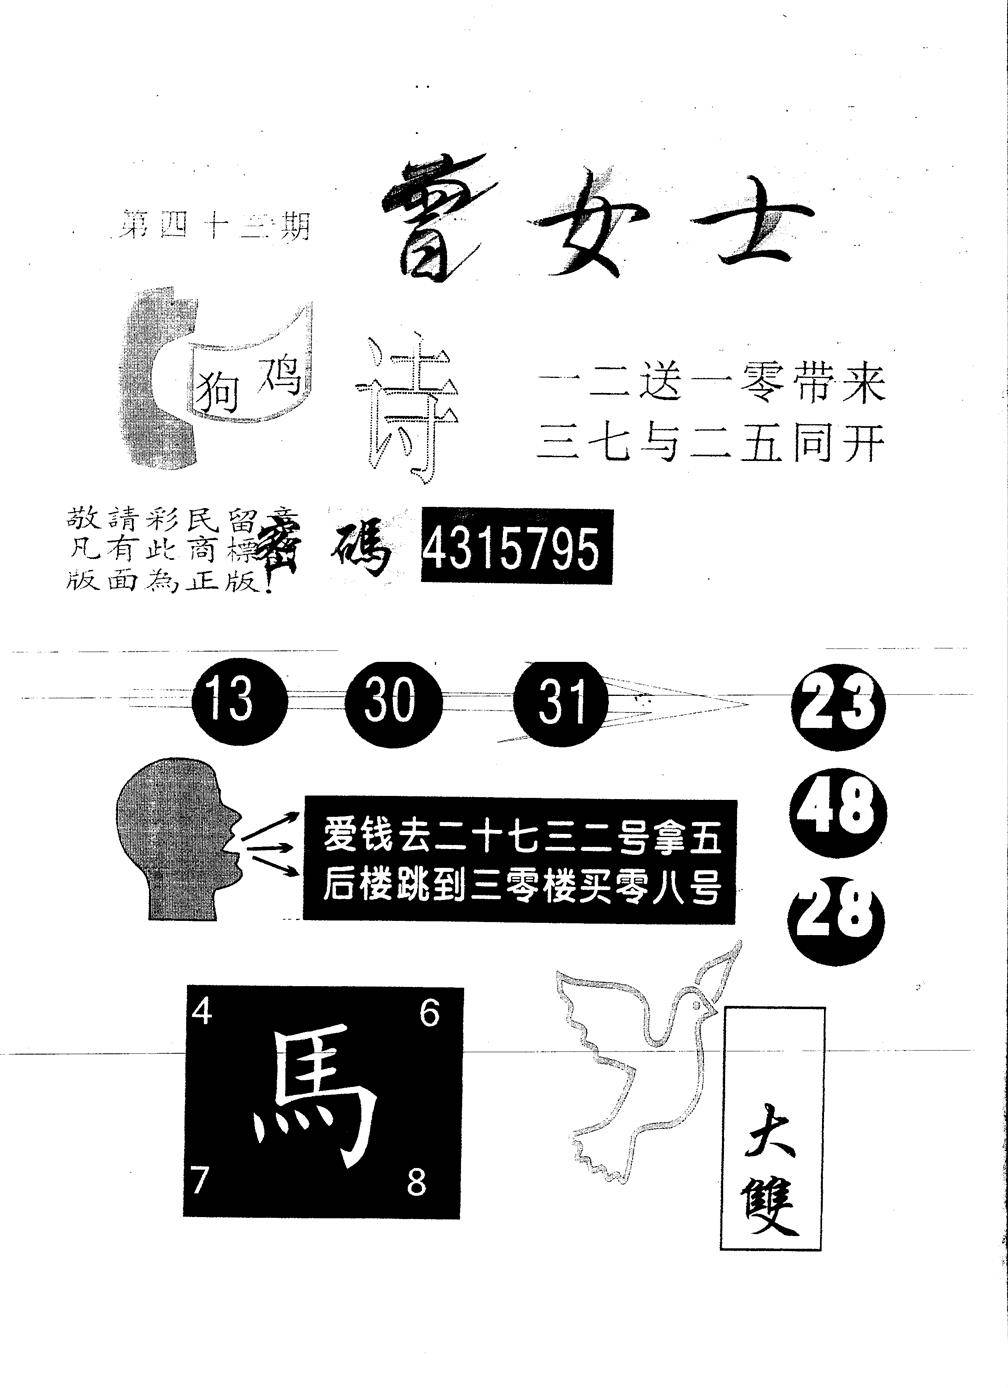 曾女士
第四十三期
狗 鸡
诗
一二送一零带来
三七与二五同开
敬請彩民留意
凡有此商標
版面為正版!
密碼 4315795
13 30 31 23
48
28
爱钱去二十七三二号拿五
后楼跳到三零楼买零八号
4 6
馬
7 8
大雙